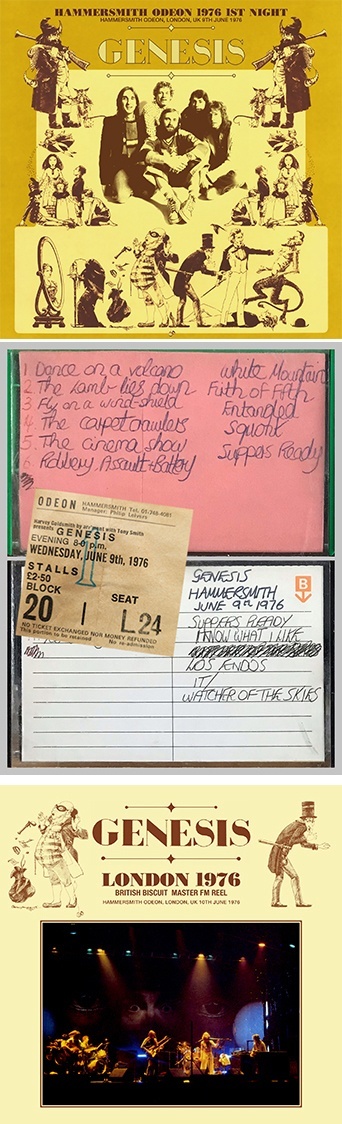 HAMMERSMITH ODEON 1976 1ST NIGHT
HAMMERSMITH ODEON, LONDON, UK 9TH JUNE 1976
GENESIS
1 Dance on a volcano
2. The lamb lies down
3 Fly on a windshield
4. The carpet crawlers
5. The cinema show
6 Robbery Assault + Battery
White Mountain
Firth of Fifth
Entangled
Squonk
Suppers Ready
ODEON HAMMERSMITH Tel. 01-748-4081
Manager: Philip Leivers
Harvey Goldsmith by arr ment with Tony Smith
presents GENESIS
EVENING 8-0 p.m.
WEDNESDAY, JUNE 9th, 1976
STALLS
£2-50
BLOCK SEAT
20 L 24
NO TICKET EXCHANGED NOR MONEY REFUNDED
This portion to be retained No re-admission
B
GENESIS
HAMMERSMITH
JUNE 9TH 1976
SUPPERS READY
I KNOW WHAT I LIKE
LOS ENDOS
IT/
WATCHER OF THE SKIES
GENESIS
LONDON 1976
BRITISH BISCUIT MASTER FM REEL
HAMMERSMITH ODEON, LONDON, UK 10TH JUNE 1976